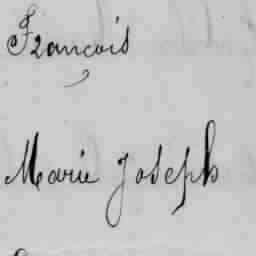 François
Marie Joseph